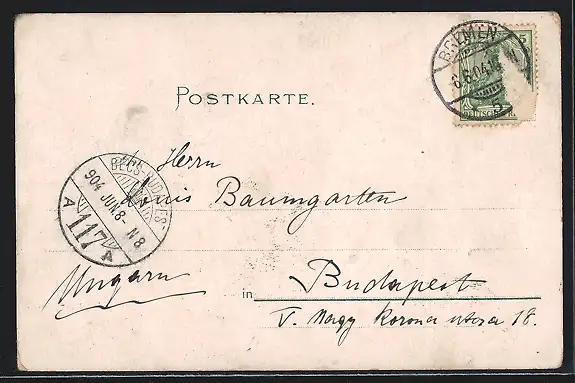 BREMEN
6.6.04.
5
DEUTSCH
POSTKARTE.
Herrn
BÉCS-BUDAPEST
904 JUN. 8. N 8
A 117
Louis Baumgarten
Ungarn
in Budapest
V. Nagy Korona utcza 18.